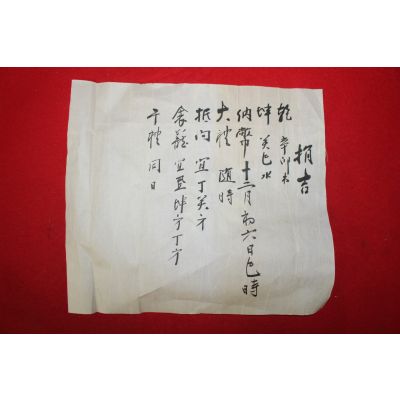 涓吉
乾 辛卯木
坤 癸巳水
納幣 十二月初六日巳時
大禮 隨時
抵向 宜丁癸方
宜 坤方丁方
于禮 同日